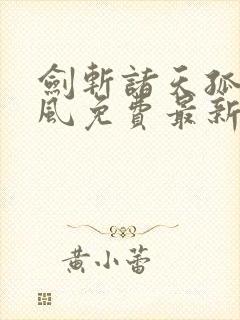 劍斬諸天孤
風免費最新
黃小蕾